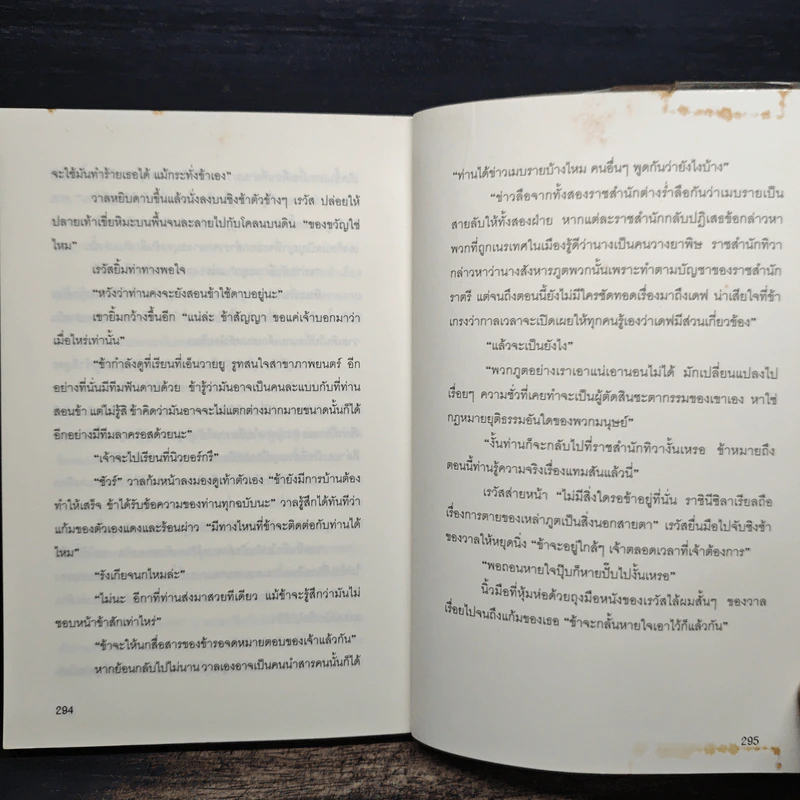 จะใช้มันทำร้ายเธอได้ แม้กระทั่งข้าเอง”
วาลหยิบดาบขึ้นแล้วนั่งลงบนชิงช้าตัวข้างๆ เรวัส ปล่อยให้
ปลายเท้าเขี่ยหิมะบนพื้นจนละลายไปกับโคลนบนดิน “ของขวัญใช่
ไหม”
เรวัสยิ้มท่าทางพอใจ
“หวังว่าท่านคงจะยังสอนข้าใช้ดาบอยู่นะ”
เขายิ้มกว้างขึ้นอีก “แน่ล่ะ ข้าสัญญา ขอแค่เจ้าบอกมาว่า
เมื่อไหร่เท่านั้น”
“ข้ากำลังดูที่เรียนที่เอ็นวายยู รูทสนใจสาขาภาพยนตร์ อีก
อย่างที่นั่นมีทีมฟันดาบด้วย ข้ารู้ว่ามันอาจเป็นคนละแบบกับที่ท่าน
สอนข้า แต่ไม่รู้สิ ข้าคิดว่ามันอาจจะไม่แตกต่างมากมายขนาดนั้นก็ได้
อีกอย่างมีทีมลาครอสด้วยนะ”
“เจ้าจะไปเรียนที่นิวยอร์กรึ”
“ชัวร์” วาลก้มหน้าลงมองดูเท้าตัวเอง “ข้ายังมีการบ้านต้อง
ทำให้เสร็จ ข้าได้รับข้อความของท่านทุกฉบับนะ” วาลรู้สึกได้ทันทีว่า
แก้มของตัวเองแดงและร้อนผ่าว “มีทางไหนที่ข้าจะติดต่อกับท่านได้
ไหม”
“รังเกียจนกไหมล่ะ”
“ไม่นะ อีกาที่ท่านส่งมาสวยทีเดียว แม้ข้าจะรู้สึกว่ามันไม่
ชอบหน้าข้าสักเท่าไหร่”
“ข้าจะให้นกสื่อสารของข้ารอจดหมายตอบของเจ้าแล้วกัน”
หากย้อนกลับไปไม่นาน วาลเองอาจเป็นคนนำสารคนนั้นก็ได้
294
“ท่านได้ข่าวเมบรายบ้างไหม คนอื่นๆ พูดกันว่ายังไงบ้าง”
“ข่าวลือจากทั้งสองราชสำนักต่างร่ำลือกันว่าเมบรายเป็น
สายลับให้ทั้งสองฝ่าย หากแต่ละราชสำนักกลับปฏิเสธข้อกล่าวหา
พวกที่ถูกเนรเทศในเมืองรู้ดีว่านางเป็นคนวางยาพิษ ราชสำนักทิวา
กล่าวหาว่านางสังหารภูตพวกนั้นเพราะทำตามบัญชาของราชสำนัก
ราตรี แต่จนถึงตอนนี้ยังไม่มีใครซัดทอดเรื่องมาถึงเดฟ น่าเสียใจที่ข้า
เกรงว่ากาลเวลาจะเปิดเผยให้ทุกคนรู้เองว่าเดฟมีส่วนเกี่ยวข้อง”
“แล้วจะเป็นยังไง”
“พวกภูตอย่างเราเอาแน่เอานอนไม่ได้ มักเปลี่ยนแปลงไป
เรื่อยๆ ความชั่วที่เคยทำจะเป็นผู้ตัดสินชะตากรรมของเขาเอง หาใช่
กฎหมายยุติธรรมอันใดของพวกมนุษย์”
“งั้นท่านก็จะกลับไปที่ราชสำนักทิวางั้นเหรอ ข้าหมายถึง
ตอนนี้ท่านรู้ความจริงเรื่องแทมสันแล้วนี่”
เรวัสส่ายหน้า “ไม่มีสิ่งใดรอข้าอยู่ที่นั่น ราชินีซิลาเรียลถือ
เรื่องการตายของเหล่าภูตเป็นสิ่งนอกสายตา” เรวัสยื่นมือไปจับชิงช้า
ของวาลให้หยุดนิ่ง “ข้าจะอยู่ใกล้ๆ เจ้าตลอดเวลาที่เจ้าต้องการ”
“พอถอนหายใจปุ๊บก็หายปั๊บไปงั้นเหรอ”
นิ้วมือที่หุ้มห่อด้วยถุงมือหนังของเรวัสไล้ผมสั้นๆ ของวาล
เรื่อยไปจนถึงแก้มของเธอ “ข้าจะกลั้นหายใจเอาไว้ก็แล้วกัน”
295